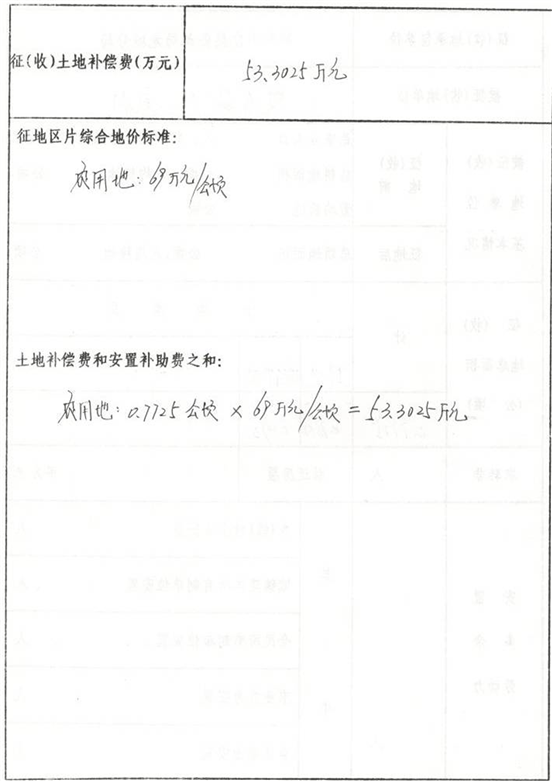 征(收)土地补偿费(万元) 53.3025万元
征地区片综合地价标准:
农用地: 69万元/公顷
土地补偿费和安置补助费之和:
农用地: 0.7725公顷 × 69万元/公顷 = 53.3025万元